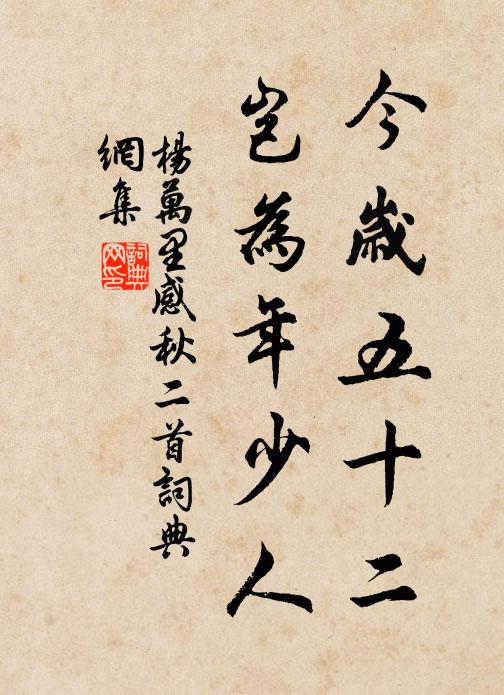 今歲五十二
豈為年少人
楊萬里感秋二首詞典
網集
詞典
网印